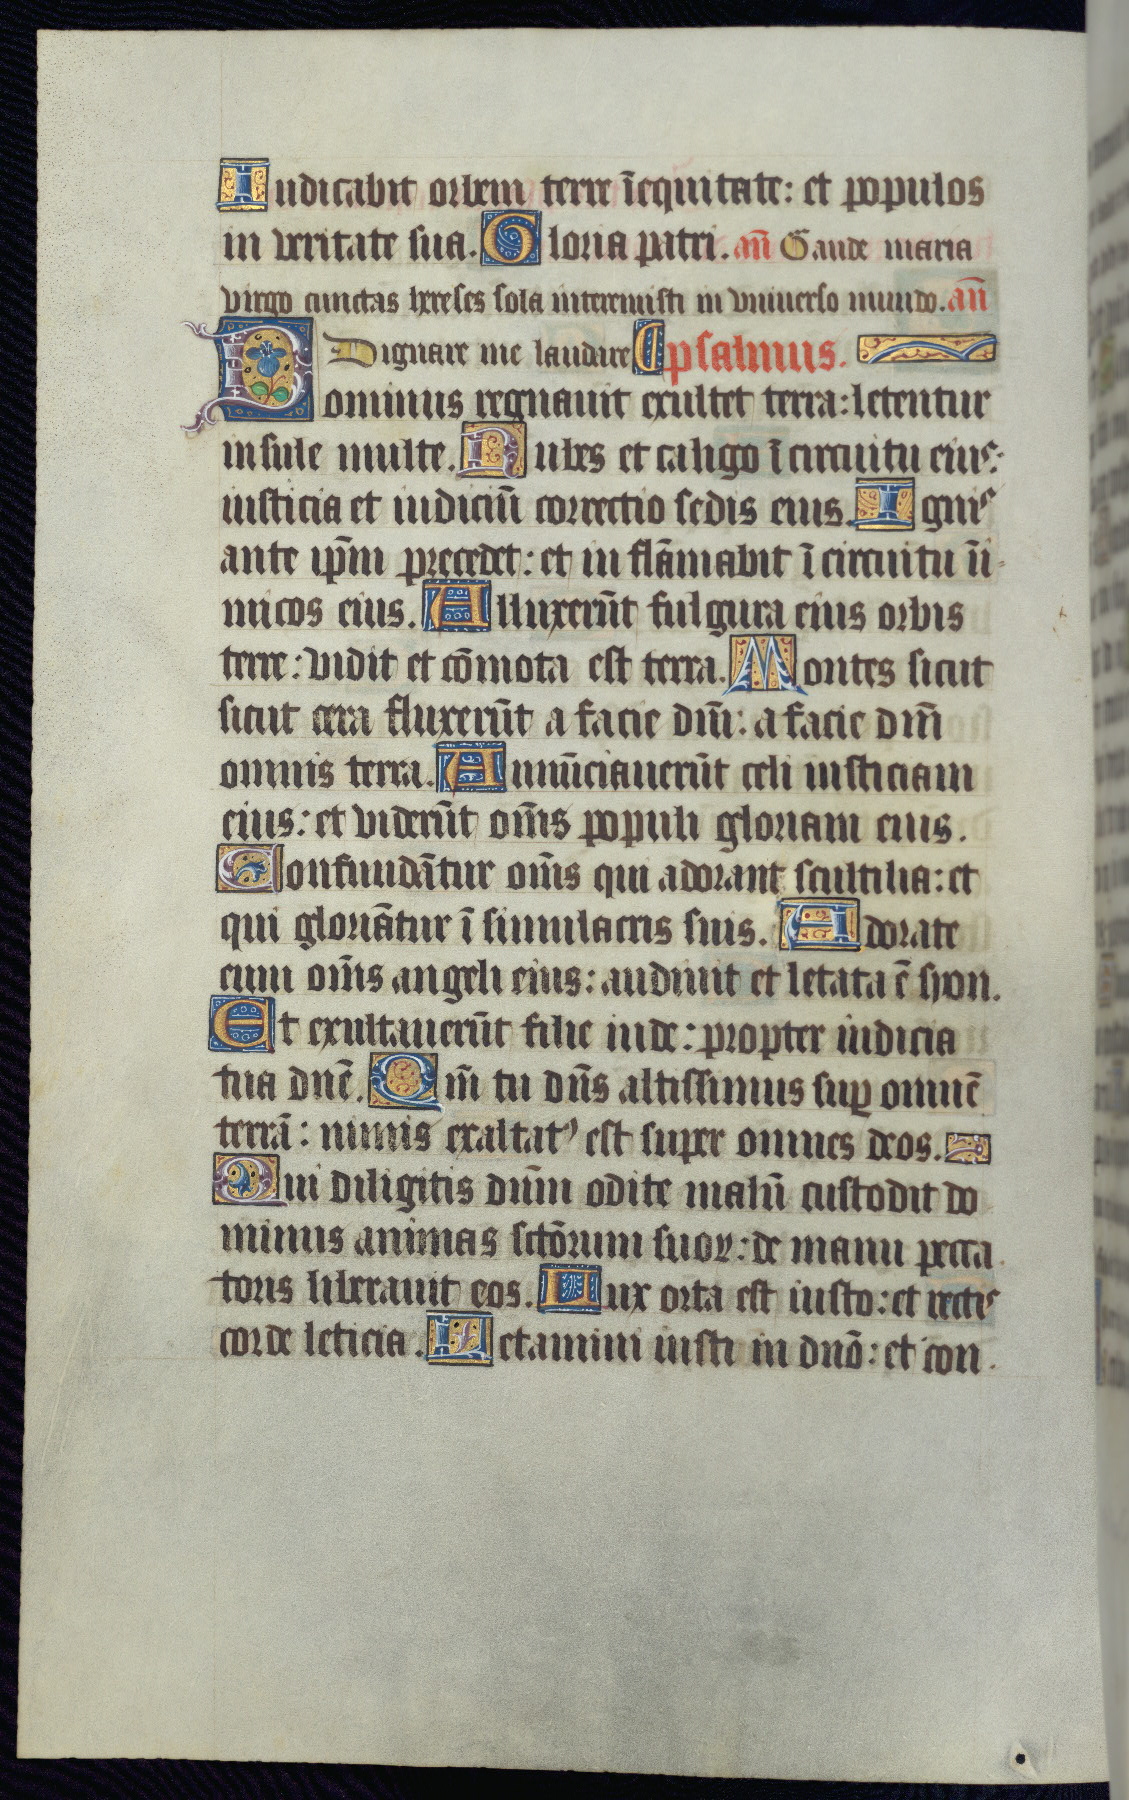 Iudicabit orbem terre ī equitate: et populos
in veritate sua. Gloria patri. añ Gaude maria
virgo cunctas hereses sola interemisti in vniuerso mundo. añ
Dignare me laudare psalmus.
Dominus regnauit exultet terra: letentur
insule multe. Nubes et caligo ī circuitu eius:
iusticia et iudiciū correctio sedis eius. Ignis
ante ip̄m precedet: et in flāmabit ī circuitu īi
micos eius. Alluxerūt fulgura eius orbis
terre: vidit et cōmota est terra. Montes sicut
sicut cera fluxerūt a facie dn̄i: a facie dn̄i
omnis terra. Annūciauerūt celi iusticiam
eius: et viderūt om̄s populi gloriam eius.
Confundātur om̄s qui adorant scultilia: et
qui gloriātur ī simulacris suis. Adorate
eum om̄s angeli eius: audiuit et letata ē syon.
Et exultauerūt filie iude: propter iudicia
tua dn̄e. Qm̄ tu dn̄s altissimus suꝑ omnē
terrā: nimis exaltatꝰ est super omnes deos.
Qui diligitis dn̄m odite malū custodit do
minus animas sctōrum suoꝝ: de manu pecca
toris liberauit eos. Lux orta est iusto: et rectis
corde leticia. Letamini iusti in dn̄o: et con